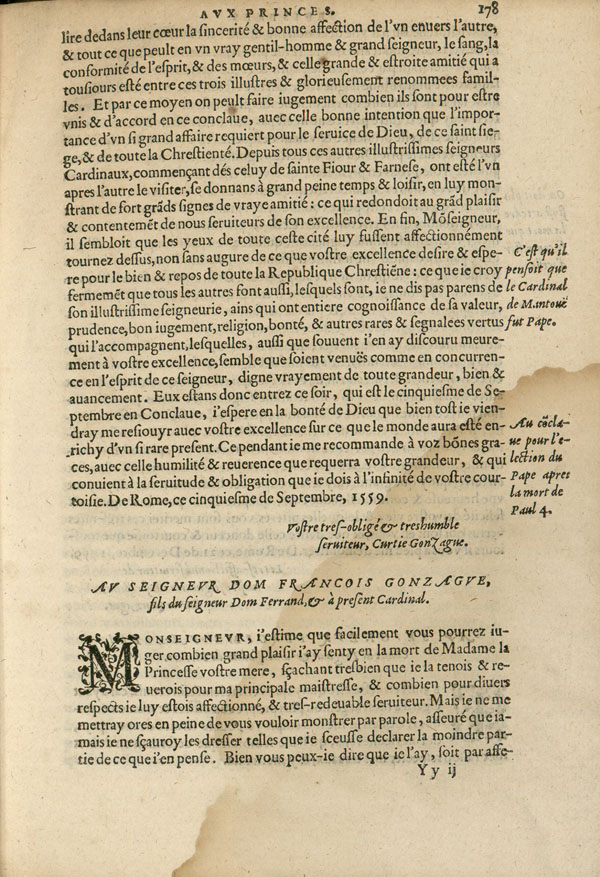 AVX PRINCES. 178
lire dedans leur cœur la sincerité & bonne affection de l'vn enuers l'autre,
& tout ce que peult en vn vray gentil-homme & grand seigneur, le sang, la
conformité de l'esprit, & des mœurs, & celle grande & estroite amitié qui a
tousiours esté entre ces trois illustres & glorieusement renommees famil-
les. Et par ce moyen on peult faire iugement combien ils sont pour estre
vnis & d'accord en ce conclaue, auec celle bonne intention que l'impor-
tance d'vn si grand affaire requiert pour le seruice de Dieu, de ce saint sie-
ge, & de toute la Chrestienté. Depuis tous ces autres illustrissimes seigneurs
Cardinaux, commençant dés celuy de sainte Fiour & Farnese, ont esté l'vn
apres l'autre le visiter, se donnans à grand peine temps & loisir, en luy mon-
strant de fort grãds signes de vraye amitié : ce qui redondoit au grãd plaisir
& contentemẽt de nous seruiteurs de son excellence. En fin, Mõseigneur,
il sembloit que les yeux de toute ceste cité luy fussent affectionnément
tournez dessus, non sans augure de ce que vostre excellence desire & espe-
re pour le bien & repos de toute la Republique Chrestiẽne : ce que ie croy
fermemẽt que tous les autres font aussi, lesquels sont, ie ne dis pas parens de
son illustrissime seigneurie, ains qui ont entiere cognoissance de sa valeur,
prudence, bon iugement, religion, bonté, & autres rares & segnalees vertus
qui l'accompagnent, lesquelles, aussi que souuent i'en ay discouru meure-
ment à vostre excellence, semble que soient venuës comme en concurren-
ce en l'esprit de ce seigneur, digne vrayement de toute grandeur, bien &
auancement. Eux estans donc entrez ce soir, qui est le cinquiesme de Se-
ptembre en Conclaue, i'espere en la bonté de Dieu que bien tost ie vien-
dray me resiouyr auec vostre excellence sur ce que le monde aura esté en-
richy d'vn si rare present. Ce pendant ie me recommande à voz bõnes gra-
ces, auec celle humilité & reuerence que requerra vostre grandeur, & qui
conuient à la seruitude & obligation que ie dois à l'infinité de vostre cour-
toisie. De Rome, ce cinquiesme de Septembre, 1559.
C'est qu'il
pensoit que
le Cardinal
de Mantouë
fut Pape.
Au cõcla-
ue pour l'e-
lection du
Pape apres
la mort de
Paul 4.
Vostre tres-obligé & treshumble
seruiteur, Curtie Gonzague.
AV SEIGNEVR DOM FRANCOIS GONZAGVE,
fils du seigneur Dom Ferrand, & à present Cardinal.
MONSEIGNEVR, i'estime que facilement vous pourrez iu-
ger combien grand plaisir i'ay senty en la mort de Madame la
Princesse vostre mere, sçachant tresbien que ie la tenois & re-
uerois pour ma principale maistresse, & combien pour diuers
respects ie luy estois affectionné, & tres-redeuable seruiteur. Mais ie ne me
mettray ores en peine de vous vouloir monstrer par parole, asseuré que ia-
mais ie ne sçauroy les dresser telles que ie sceusse declarer la moindre par-
tie de ce que i'en pense. Bien vous peux-ie dire que ie l'ay, soit par affe-
Y y ij